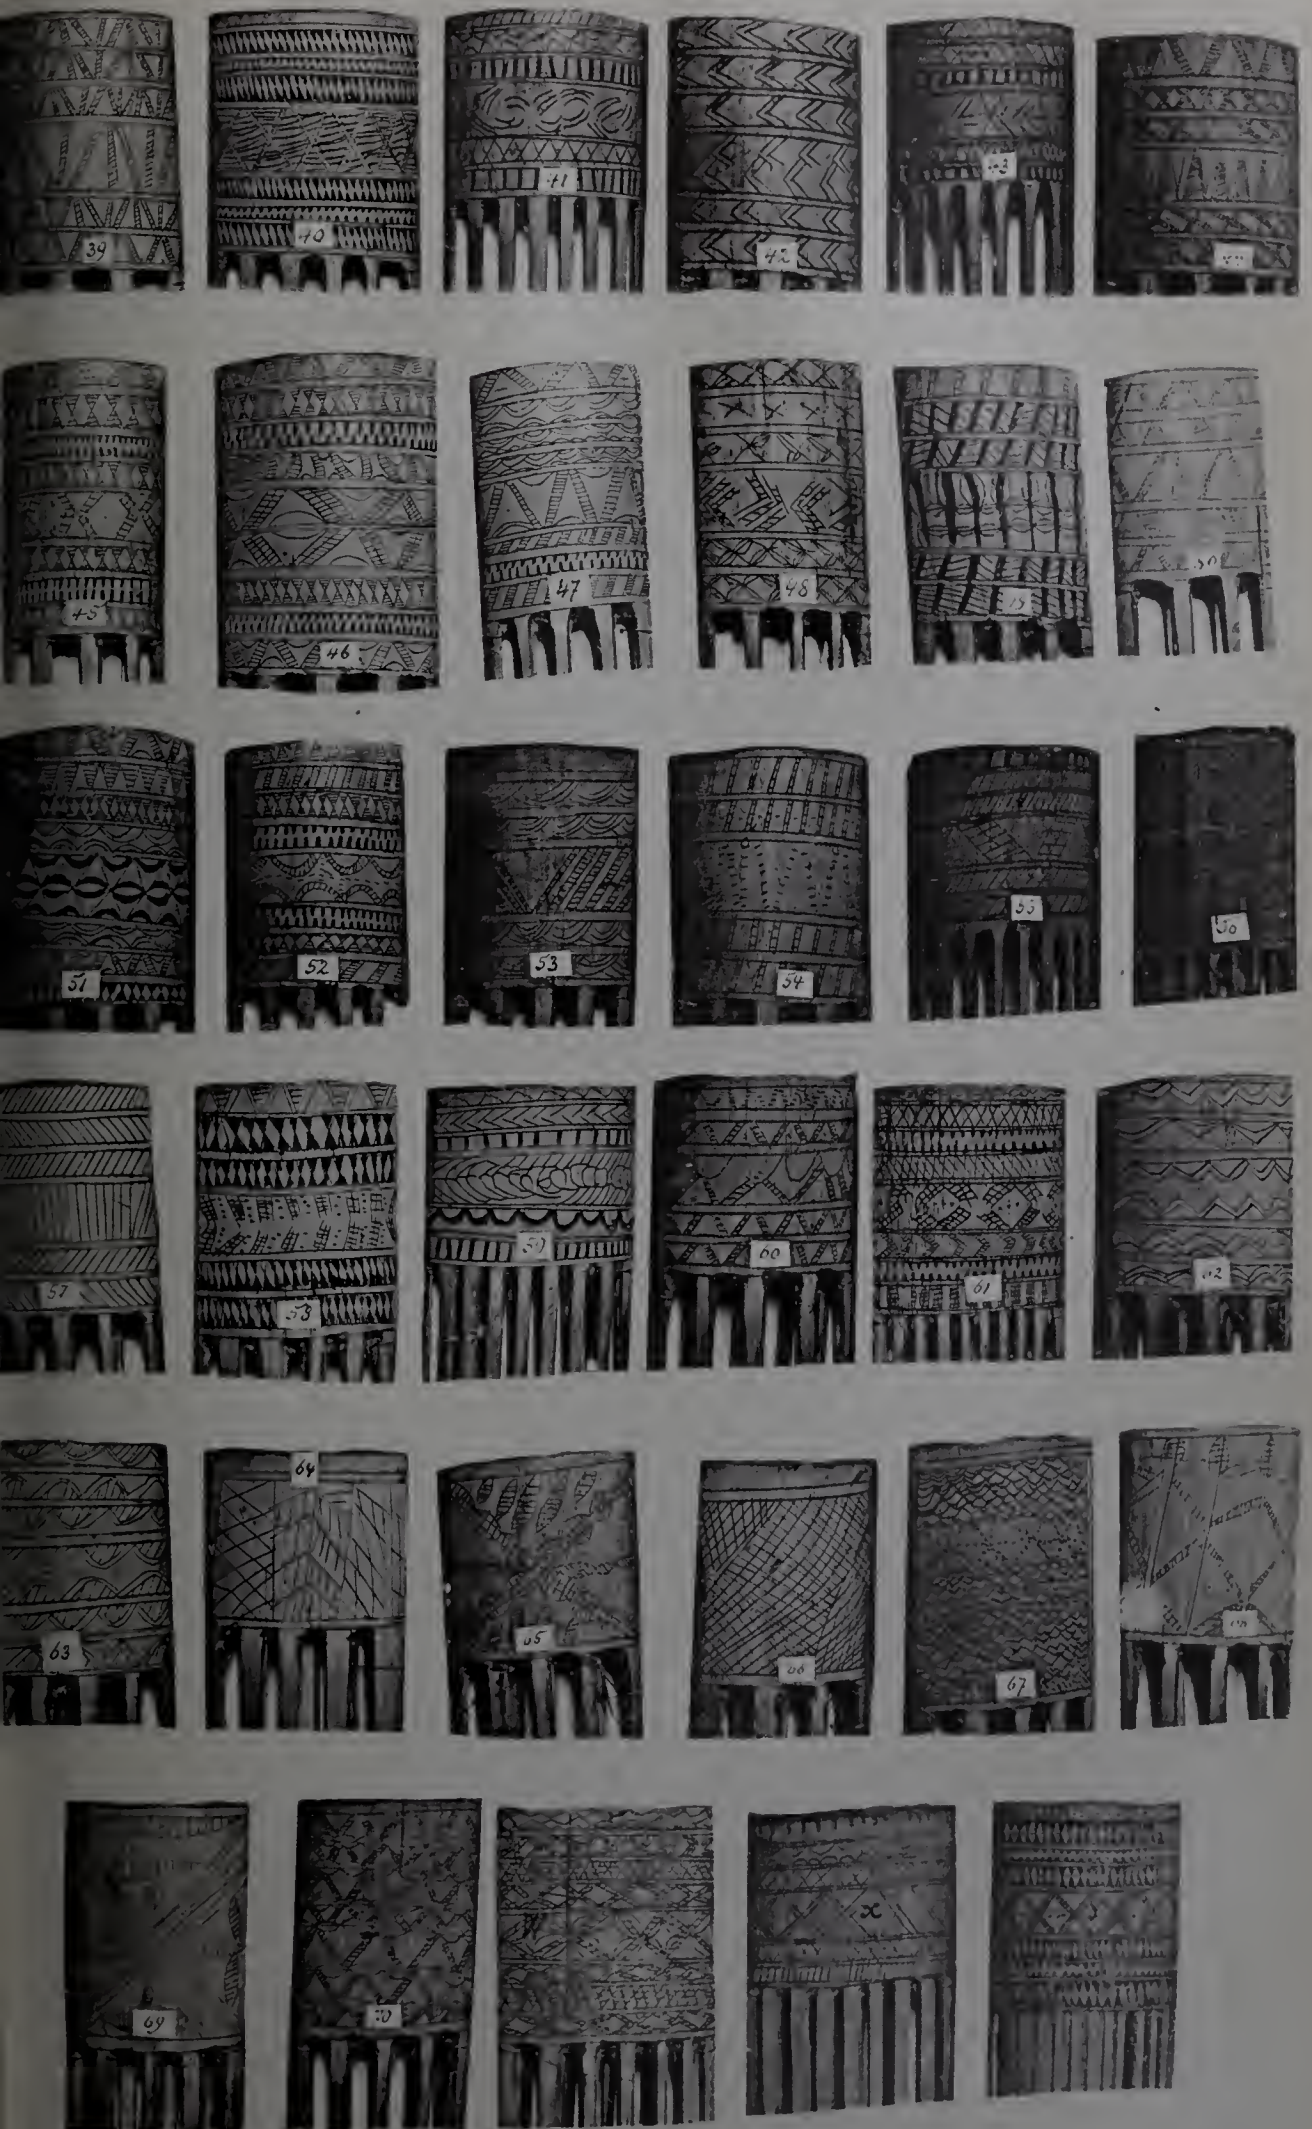 39
40
41
42
43
45
46
47
48
50
51
52
53
54
57
58
59
60
61
62
63
64
65
66
67
69
70
x
y